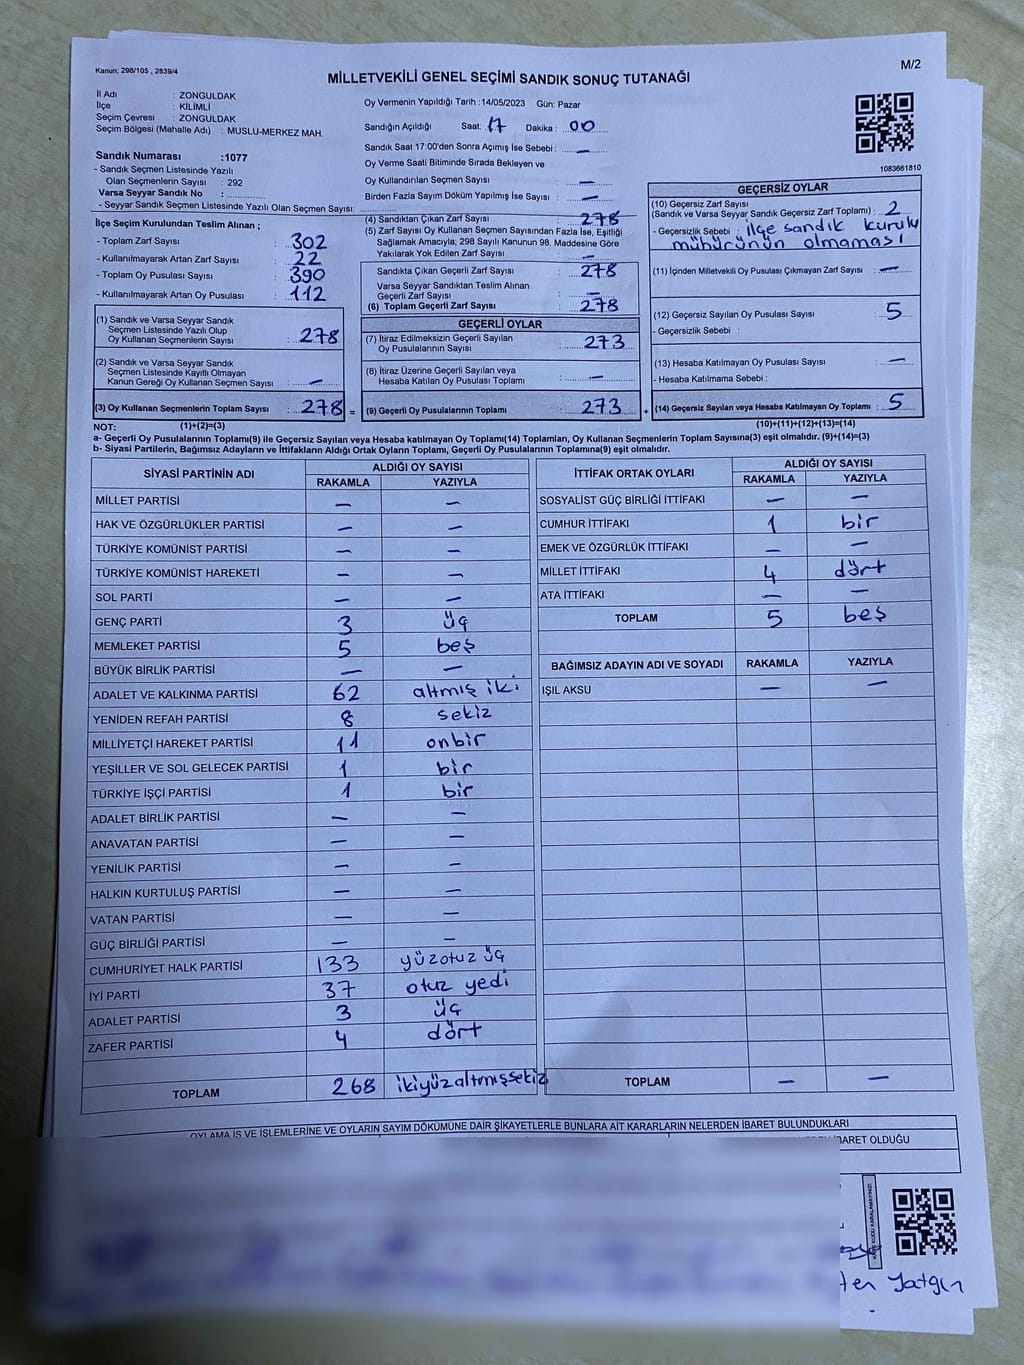 Kanun; 298/105 , 2839/4
M/2
MİLLETVEKİLİ GENEL SEÇİMİ SANDIK SONUÇ TUTANAĞI
İl Adı : ZONGULDAK
İlçe : KİLİMLİ
Seçim Çevresi : ZONGULDAK
Seçim Bölgesi (Mahalle Adı) : MUSLU-MERKEZ MAH.
Sandık Numarası :1077
- Sandık Seçmen Listesinde Yazılı
Olan Seçmenlerin Sayısı : 292
Varsa Seyyar Sandık No :
- Seyyar Sandık Seçmen Listesinde Yazılı Olan Seçmen Sayısı:
Oy Vermenin Yapıldığı Tarih :14/05/2023 Gün: Pazar
Sandığın Açıldığı Saat: 17 Dakika : 00
Sandık Saat 17:00'den Sonra Açımış İse Sebebi : —
Oy Verme Saati Bitiminde Sırada Bekleyen ve
Oy Kullandırılan Seçmen Sayısı : —
Birden Fazla Sayım Döküm Yapılmış İse Sayısı : —
1083661810
İlçe Seçim Kurulundan Teslim Alınan ;
- Toplam Zarf Sayısı : 302
- Kullanılmayarak Artan Zarf Sayısı : 22
- Toplam Oy Pusulası Sayısı : 390
- Kullanılmayarak Artan Oy Pusulası : 112
(1) Sandık ve Varsa Seyyar Sandık
Seçmen Listesinde Yazılı Olup
Oy Kullanan Seçmenlerin Sayısı : 278
(2) Sandık ve Varsa Seyyar Sandık
Seçmen Listesinde Kayıtlı Olmayan
Kanun Gereği Oy Kullanan Seçmen Sayısı : —
(3) Oy Kullanan Seçmenlerin Toplam Sayısı : 278 =
(4) Sandıktan Çıkan Zarf Sayısı : 278
(5) Zarf Sayısı Oy Kullanan Seçmen Sayısından Fazla İse, Eşitliği
Sağlamak Amacıyla; 298 Sayılı Kanunun 98. Maddesine Göre
Yakılarak Yok Edilen Zarf Sayısı : —
Sandıkta Çıkan Geçerli Zarf Sayısı : 278
Varsa Seyyar Sandıktan Teslim Alınan
Geçerli Zarf Sayısı : —
(6) Toplam Geçerli Zarf Sayısı : 278
GEÇERLİ OYLAR
(7) İtiraz Edilmeksizin Geçerli Sayılan
Oy Pusulalarının Sayısı : 273
(8) İtiraz Üzerine Geçerli Sayılan veya
Hesaba Katılan Oy Pusulası Toplamı : —
(9) Geçerli Oy Pusulalarının Toplamı : 273 +
GEÇERSİZ OYLAR
(10) Geçersiz Zarf Sayısı
(Sandık ve Varsa Seyyar Sandık Geçersiz Zarf Toplamı) : 2
- Geçersizlik Sebebi : ilçe sandık kurulu
mühürünün olmaması
(11) İçinden Milletvekili Oy Pusulası Çıkmayan Zarf Sayısı : —
(12) Geçersiz Sayılan Oy Pusulası Sayısı : 5
- Geçersizlik Sebebi :
(13) Hesaba Katılmayan Oy Pusulası Sayısı : —
- Hesaba Katılmama Sebebi :
(14) Geçersiz Sayılan veya Hesaba Katılmayan Oy Toplamı : 5
NOT: (1)+(2)=(3) (10)+(11)+(12)+(13)=(14)
a- Geçerli Oy Pusulalarının Toplamı(9) ile Geçersiz Sayılan veya Hesaba katılmayan Oy Toplamı(14) Toplamları, Oy Kullanan Seçmenlerin Toplam Sayısına(3) eşit olmalıdır. (9)+(14)=(3)
b- Siyasi Partilerin, Bağımsız Adayların ve İttifakların Aldığı Ortak Oyların Toplamı, Geçerli Oy Pusulalarının Toplamına(9) eşit olmalıdır.
SİYASİ PARTİNİN ADI ALDIĞI OY SAYISI
RAKAMLA YAZIYLA
MİLLET PARTİSİ — —
HAK VE ÖZGÜRLÜKLER PARTİSİ — —
TÜRKİYE KOMÜNİST PARTİSİ — —
TÜRKİYE KOMÜNİST HAREKETİ — —
SOL PARTİ — —
GENÇ PARTİ 3 üç
MEMLEKET PARTİSİ 5 beş
BÜYÜK BİRLİK PARTİSİ — —
ADALET VE KALKINMA PARTİSİ 62 altmış iki
YENİDEN REFAH PARTİSİ 8 sekiz
MİLLİYETÇİ HAREKET PARTİSİ 11 onbir
YEŞİLLER VE SOL GELECEK PARTİSİ 1 bir
TÜRKİYE İŞÇİ PARTİSİ 1 bir
ADALET BİRLİK PARTİSİ — —
ANAVATAN PARTİSİ — —
YENİLİK PARTİSİ — —
HALKIN KURTULUŞ PARTİSİ — —
VATAN PARTİSİ — —
GÜÇ BİRLİĞİ PARTİSİ — —
CUMHURİYET HALK PARTİSİ 133 yüzotuz üç
İYİ PARTİ 37 otuz yedi
ADALET PARTİSİ 3 üç
ZAFER PARTİSİ 4 dört
TOPLAM 268 ikiyüzaltmışsekiz
İTTİFAK ORTAK OYLARI ALDIĞI OY SAYISI
RAKAMLA YAZIYLA
SOSYALİST GÜÇ BİRLİĞİ İTTİFAKI — —
CUMHUR İTTİFAKI 1 bir
EMEK VE ÖZGÜRLÜK İTTİFAKI — —
MİLLET İTTİFAKI 4 dört
ATA İTTİFAKI — —
TOPLAM 5 beş
BAĞIMSIZ ADAYIN ADI VE SOYADI RAKAMLA YAZIYLA
IŞIL AKSU — —
TOPLAM — —
OYLAMA İŞ VE İŞLEMLERİNE VE OYLARIN SAYIM DÖKÜMÜNE DAİR ŞİKAYETLERLE BUNLARA AİT KARARLARIN NELERDEN İBARET BULUNDUKLARI
İBARET OLDUĞU